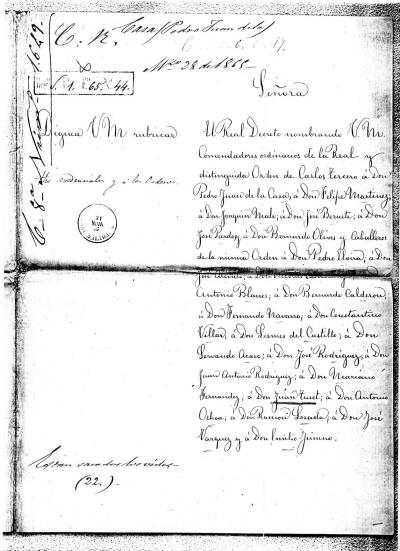 C. R. Casa (Pedro Juan de la)
Mzo 28 de 1865.
S. 1. 65. 44.
Señora
Dígnese V M rubricar
El Real Decreto nombrando V. M.
Comendadores ordinarios de la Real y
distinguida Orden de Carlos Tercero á Don
Pedro Juan de la Casa; á Don Felipe Martinez;
á Don Joaquin Malo; á Don José Bernete; á Don
José Pardoz; á Don Bernardo Olives y Caballeros
de la misma Orden á Don Pedro á Don
José
Antonio Blanes; á Don Bernardo Calderon;
á Don Fernando Navarro, á Don Constantino
Villar, á Don Lesmes del Castillo; á Don
Servando Acaso; á Don José Rodriguez; á Don
Juan Antonio Rodriguez; á Don Mariano
Fernandez; á Don Juan Tuset; á Don Antonio
Ochoa; á Don Ramon Losada; á Don José
Vazquez y á Don Emilio Jimeno.
credenciales y á la Orden.
(22.)